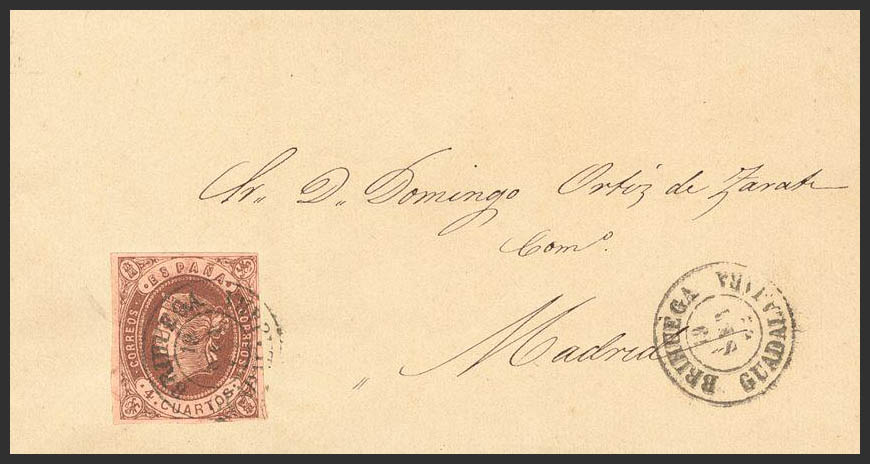 Sr. D. Domingo Ortiz de Zarate
Com.º
Madrid
ESPAÑA
CORREOS
4 CUARTOS
BRIHUEGA
BRIHUEGA
GUADALAJARA